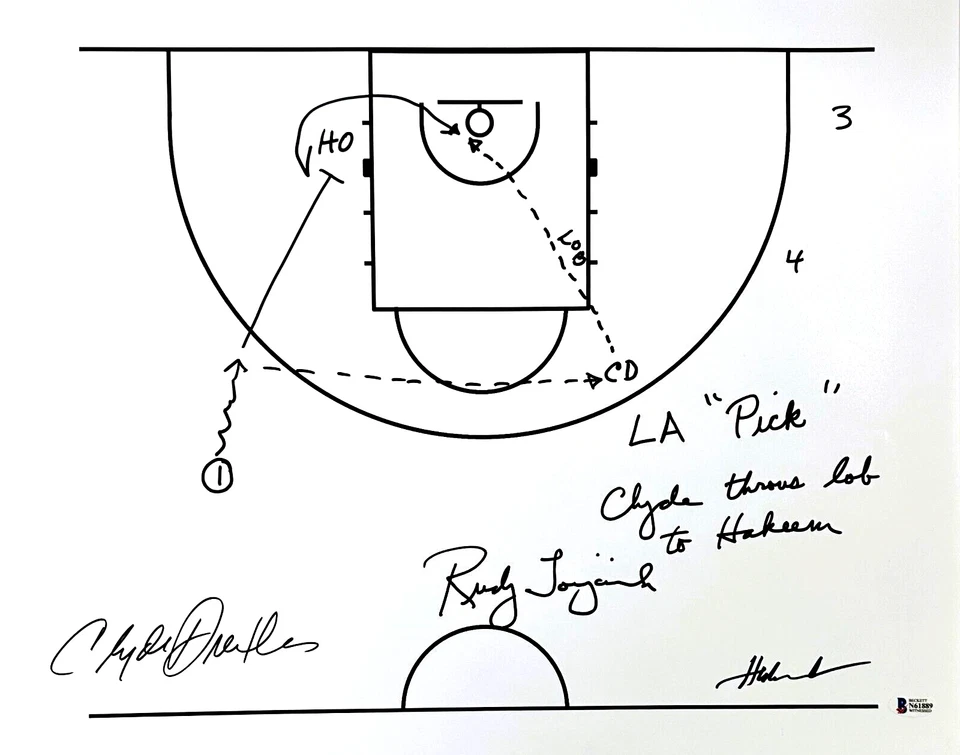 HO
3
LOB
4
CD
1
LA "Pick"
Clyde throws lob
to Hakeem
Rudy Tomjanovich
Clyde Drexler
BECKETT
N61889
WITNESSED